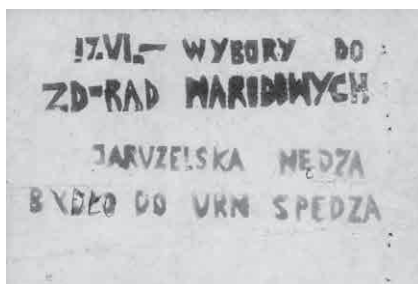 17.VI.- WYBORY DO
ZD-RAD NARODOWYCH
JARUZELSKA NĘDZA
BYDŁO DO URN SPĘDZA